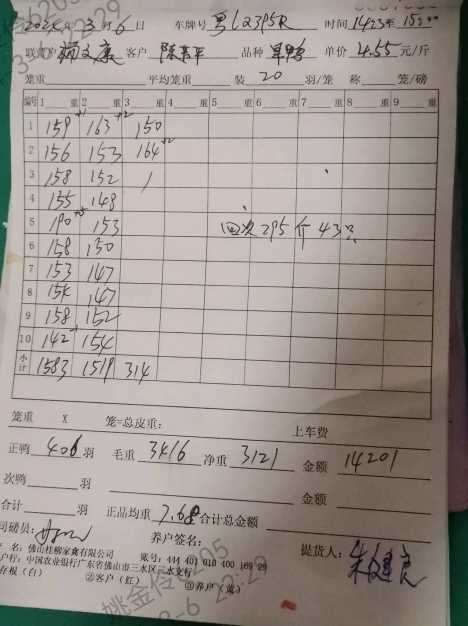 2025年3月6日 车牌号 粤L2395R 时间 1423至1500
联营户 客户 陈亮平 品种 单价 4.55 元/斤
笼重 平均笼重 装 20 羽/笼 称 笼/磅
编号 1 重 2 重 3 重 4 重 5 重 6 重 7 重 8 重 9 重
1 159 +1 163 +2 150
2 156 153 164 +2
3 158 152
4 155 148
5 190 153 回收295斤43只
6 158 150
7 153 147
8 154 147
9 158 152
10 142 154
小计 1583 1519 314
笼重 X 笼=总皮重: 上车费
正鸭 406 羽 毛重 3416 净重 3121 金额 14201
次鸭 羽 金额
合计 羽 正品均重 7.68 合计总金额
司磅员: 养户签名: 提货人:
名: 佛山桂柳家禽有限公司 账号: 444 401 010 400 169 29
户行: 中国农业银行广东省佛山市三水区三水支行
存根(白) ②客户(红) ③养户(黄)